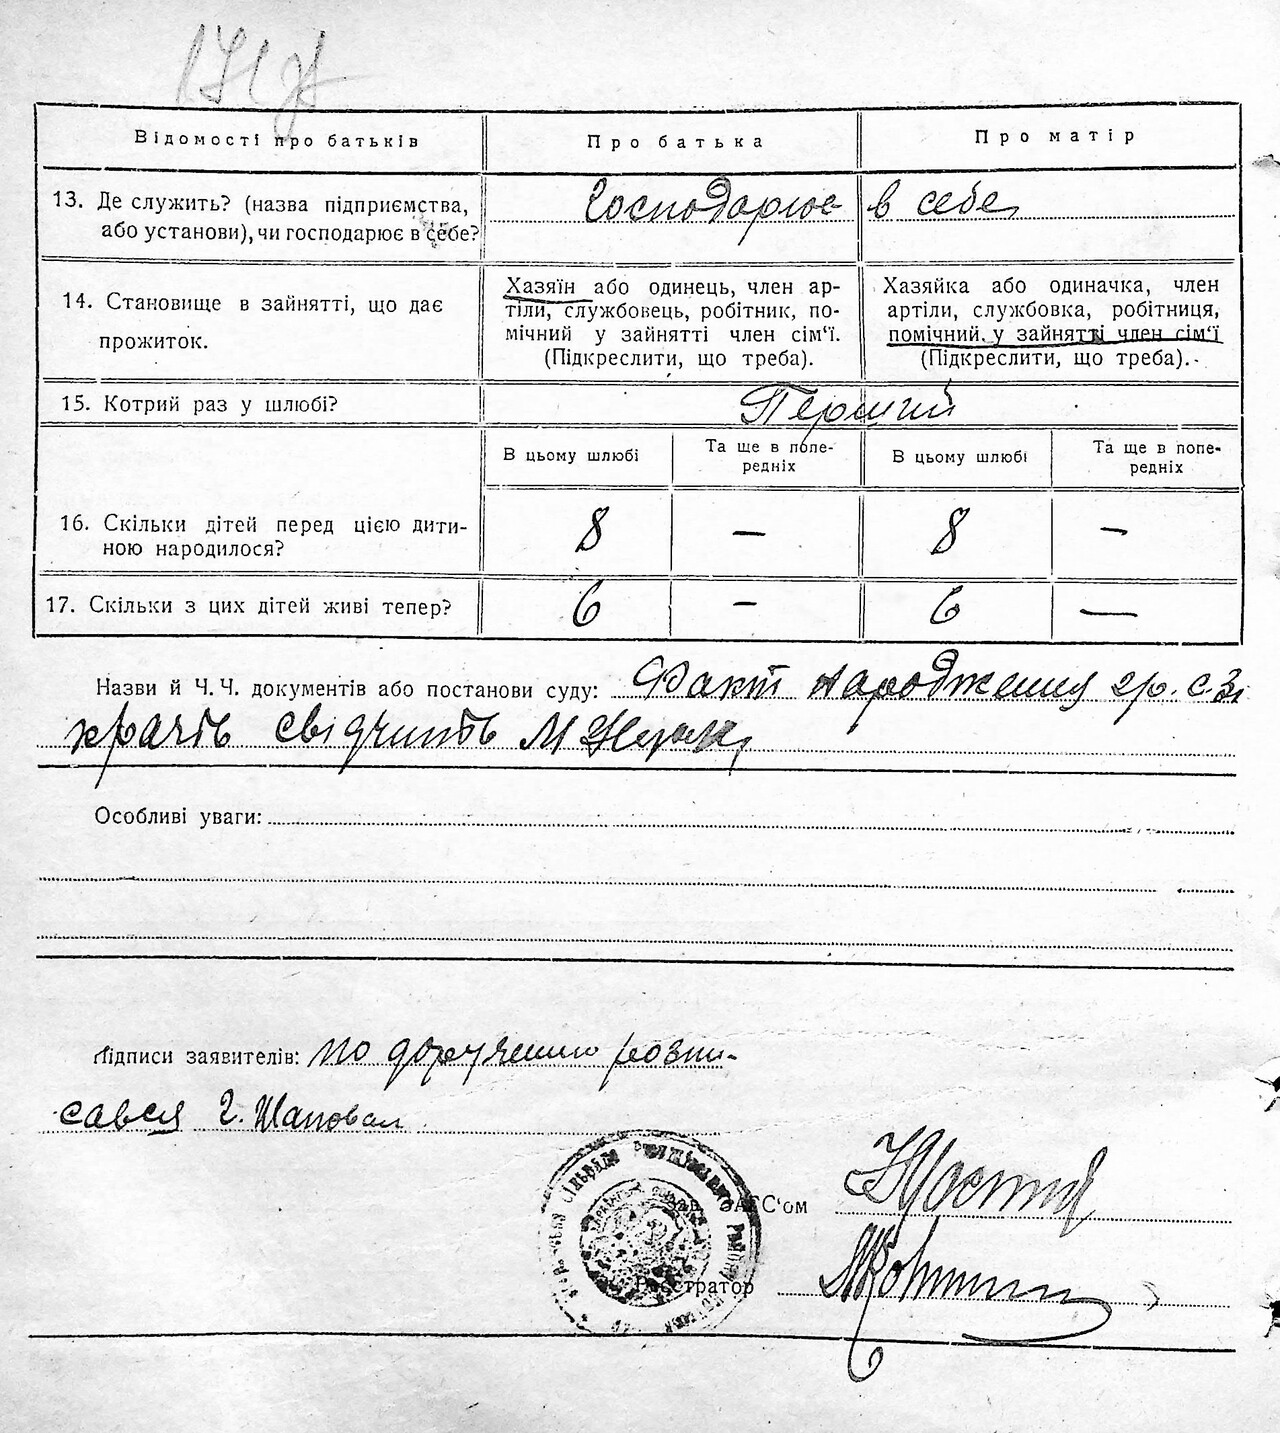 Відомості про батьків
Про батька
Про матір
13. Де служить? (назва підприємства,
або установи), чи господарює в себе?
Господарює в себе
14. Становище в зайнятті, що дає
прожиток.
Хазяїн або одинець, член ар-
тіли, службовець, робітник, по-
мічний у зайнятті член сім'ї.
(Підкреслити, що треба).
Хазяйка або одиначка, член
артіли, службовка, робітниця,
помічний у зайнятті член сім'ї
(Підкреслити, що треба).
15. Котрий раз у шлюбі?
Перший
В цьому шлюбі
Та ще в попе-
редніх
В цьому шлюбі
Та ще в попе-
редніх
16. Скільки дітей перед цією дити-
ною народилося?
8 — 8 —
17. Скільки з цих дітей живі тепер?
6 — 6 —
Назви й Ч. Ч. документів або постанови суду: Факт народження гр. с.
свідчить М
Особливі уваги:
Підписи заявителів: по доручению розпи-
сався Г. Шаповал
Зав. ЗАГС'ом
Реєстратор